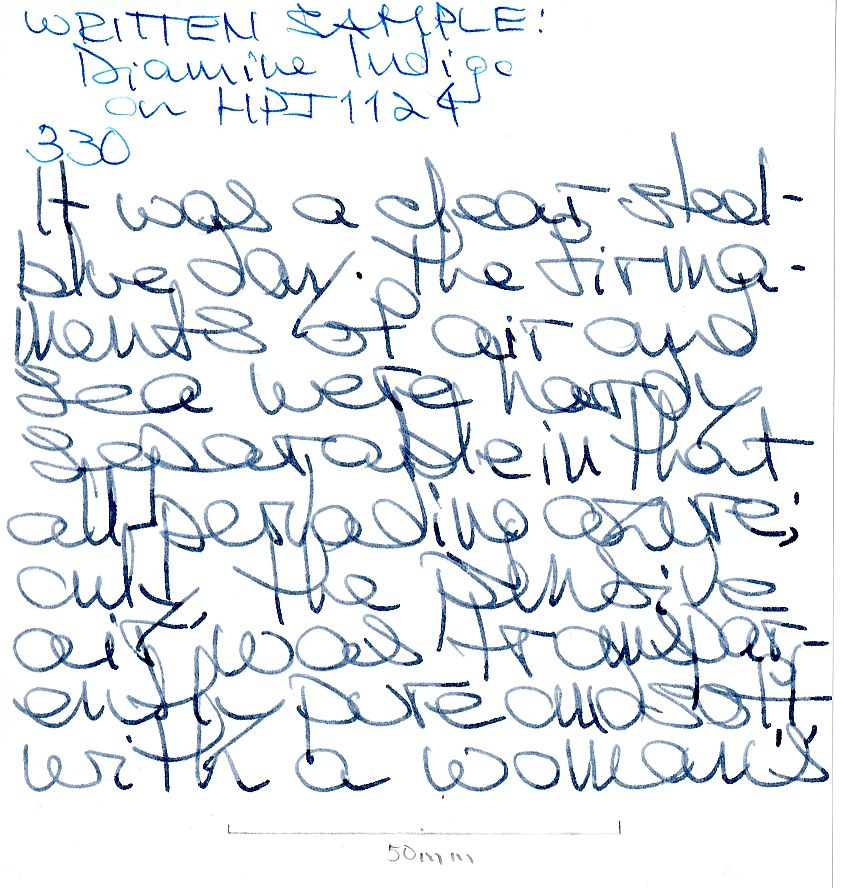 WRITTEN SAMPLE:
Diamine Indigo
on HPJ1124
330
It was a clear steel-
blue day. The firma-
ments of air and
sea were hardly
separable in that
all-pervading azure;
only, the pensive
air was transpar-
ently pure and soft
with a woman's
50mm